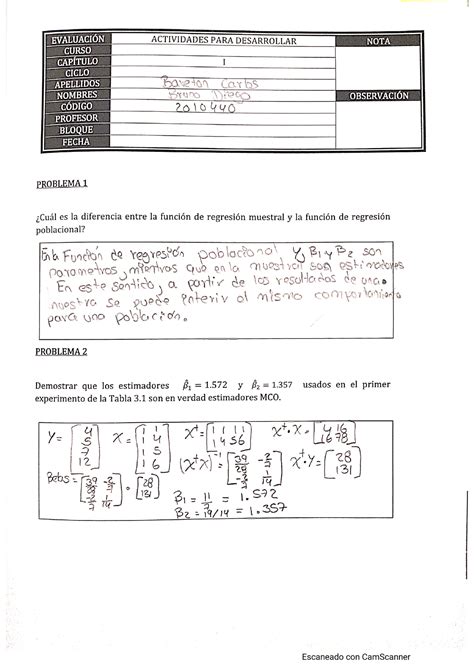 EVALUACIÓN ACTIVIDADES PARA DESARROLLAR NOTA
CURSO
CAPÍTULO I
CICLO
APELLIDOS Baretón Carlos
NOMBRES Bruno Diego OBSERVACIÓN
CÓDIGO 2010440
PROFESOR
BLOQUE
FECHA
PROBLEMA 1
¿Cuál es la diferencia entre la función de regresión muestral y la función de regresión
poblacional?
En la Función de regresión poblacional Y, B1 y B2 son
parametros, mientras que en la muestral son estimadores
En este sentido, a partir de los resultados de una
muestra se puede inferir al mismo comportamiento
para una población.
PROBLEMA 2
Demostrar que los estimadores β̂1 = 1.572 y β̂2 = 1.357 usados en el primer
experimento de la Tabla 3.1 son en verdad estimadores MCO.
Y = [4 5 7 12] X = [1 1 1 4 1 5 1 6] X^t = [1 1 1 1 1 4 5 6] X^t·X = [4 16 16 78]
(X^tX)^-1 = [39/28 -2/7 -2/7 1/14] X^t·Y = [28 131]
Betas = [39/28 -2/7 -2/7 1/14] · [28 131]
B1 = 11/7 = 1.572
B2 = 19/14 = 1.357
Escaneado con CamScanner